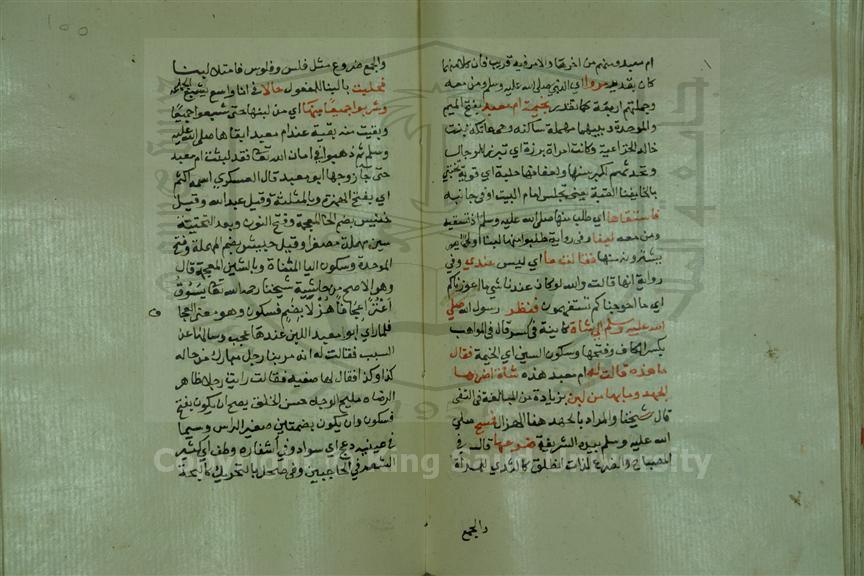 ام سعيد ومنهم من اخرها والامر فيه قريب فان كلاهما
كان بقديد مروا اي النبي صلى الله عليه وسلم ومن معه
وجملتهم اربعة كما تقدم بخيمة ام معبد بفتح الميم
والموحدة بينهما مهملة ساكنة وهي عاتكة بنت
خالد الخزاعية وكانت امراة برزة اي تبرز للرجال
وتحدثهم لكبر سنها ولعفافها جلدة اي قوية تحتبي
بالخاء بفناء القبة يعني تجلس امام البيت او في جانبه
فاستسقاها اي طلب منها صلى الله عليه وسلم ان تسقيه
ومن معه لبنا وفي رواية طلبوا منها لبنا او لحما
يشترونه منها فقالت ما اي ليس عندي وفي
رواية انها قالت والله لو كان عندنا شيء ما اعوزناكم
اي ما احوجناكم تستفهمون فنظر رسول الله صلى
الله عليه وسلم الى شاة كاينة في كسر قال في المواهب
بكسر الكاف وفتحها وسكون السين اي الخيمة فقال
ما هذه قالت له ام معبد هذه شاة اضربها
الجهد وما بها من لبن بزيادة من للمبالغة في النفي
قال شيخنا والمراد بالجهد هنا الهزال فمسح صلى
الله عليه وسلم بيده الشريفة ضرعها قال في
المصباح والضرع لذات الظلف كالثدي للمراة
والجمع
والجمع ضروع مثل فلس وفلوس فامتلا لبنا
فحلبت بالبنا للمفعول حالا في انا واسع يشبع الجماعة
وشربوا جميعا منها اي من لبنها حتى شبعوا جميعا
وبقيت منه بقية عند ام معبد ابقاها صلى الله عليه
وسلم ثم ذهبوا في امان الله تعالى فقد لبثت ام معبد
حتى جا زوجها ابو معبد قال العسكري اسمه اكثم
اي بفتح الهمزة وبالمثلثة وقيل عبد الله وقيل
خنيس بضم الخا المعجمة وفتح النون وبعد التحتية
سين مهملة مصغرا وقيل حبيش بضم المهملة وفتح
الموحدة وسكون اليا المثناة وبالشين المعجمة قال
وهو الاصح من حاشية شيخنا رحمه الله تعالى يسوق
اعنزا عجافا هزلا بضم فسكون وهو معنى العجاف
فلما راى ابو معبد اللبن عندها عجب وسالها عن
السبب فقالت له انه مر بنا رجل مبارك من حاله
كذا وكذا فقال لها صفيه فقالت رايت رجلا ظاهر
الوضاه مليح الوجه حسن الخلق يصح ان يكون بفتح
فسكون وان يكون بضمتين صغير الراس وسيما
في عينيه دعج اي سواد وفي اشفاره وطف اي كثير
الشعر في الحاجبين وفي صحل بالتحريك كالبحة
1957
Copyright © King Saud University